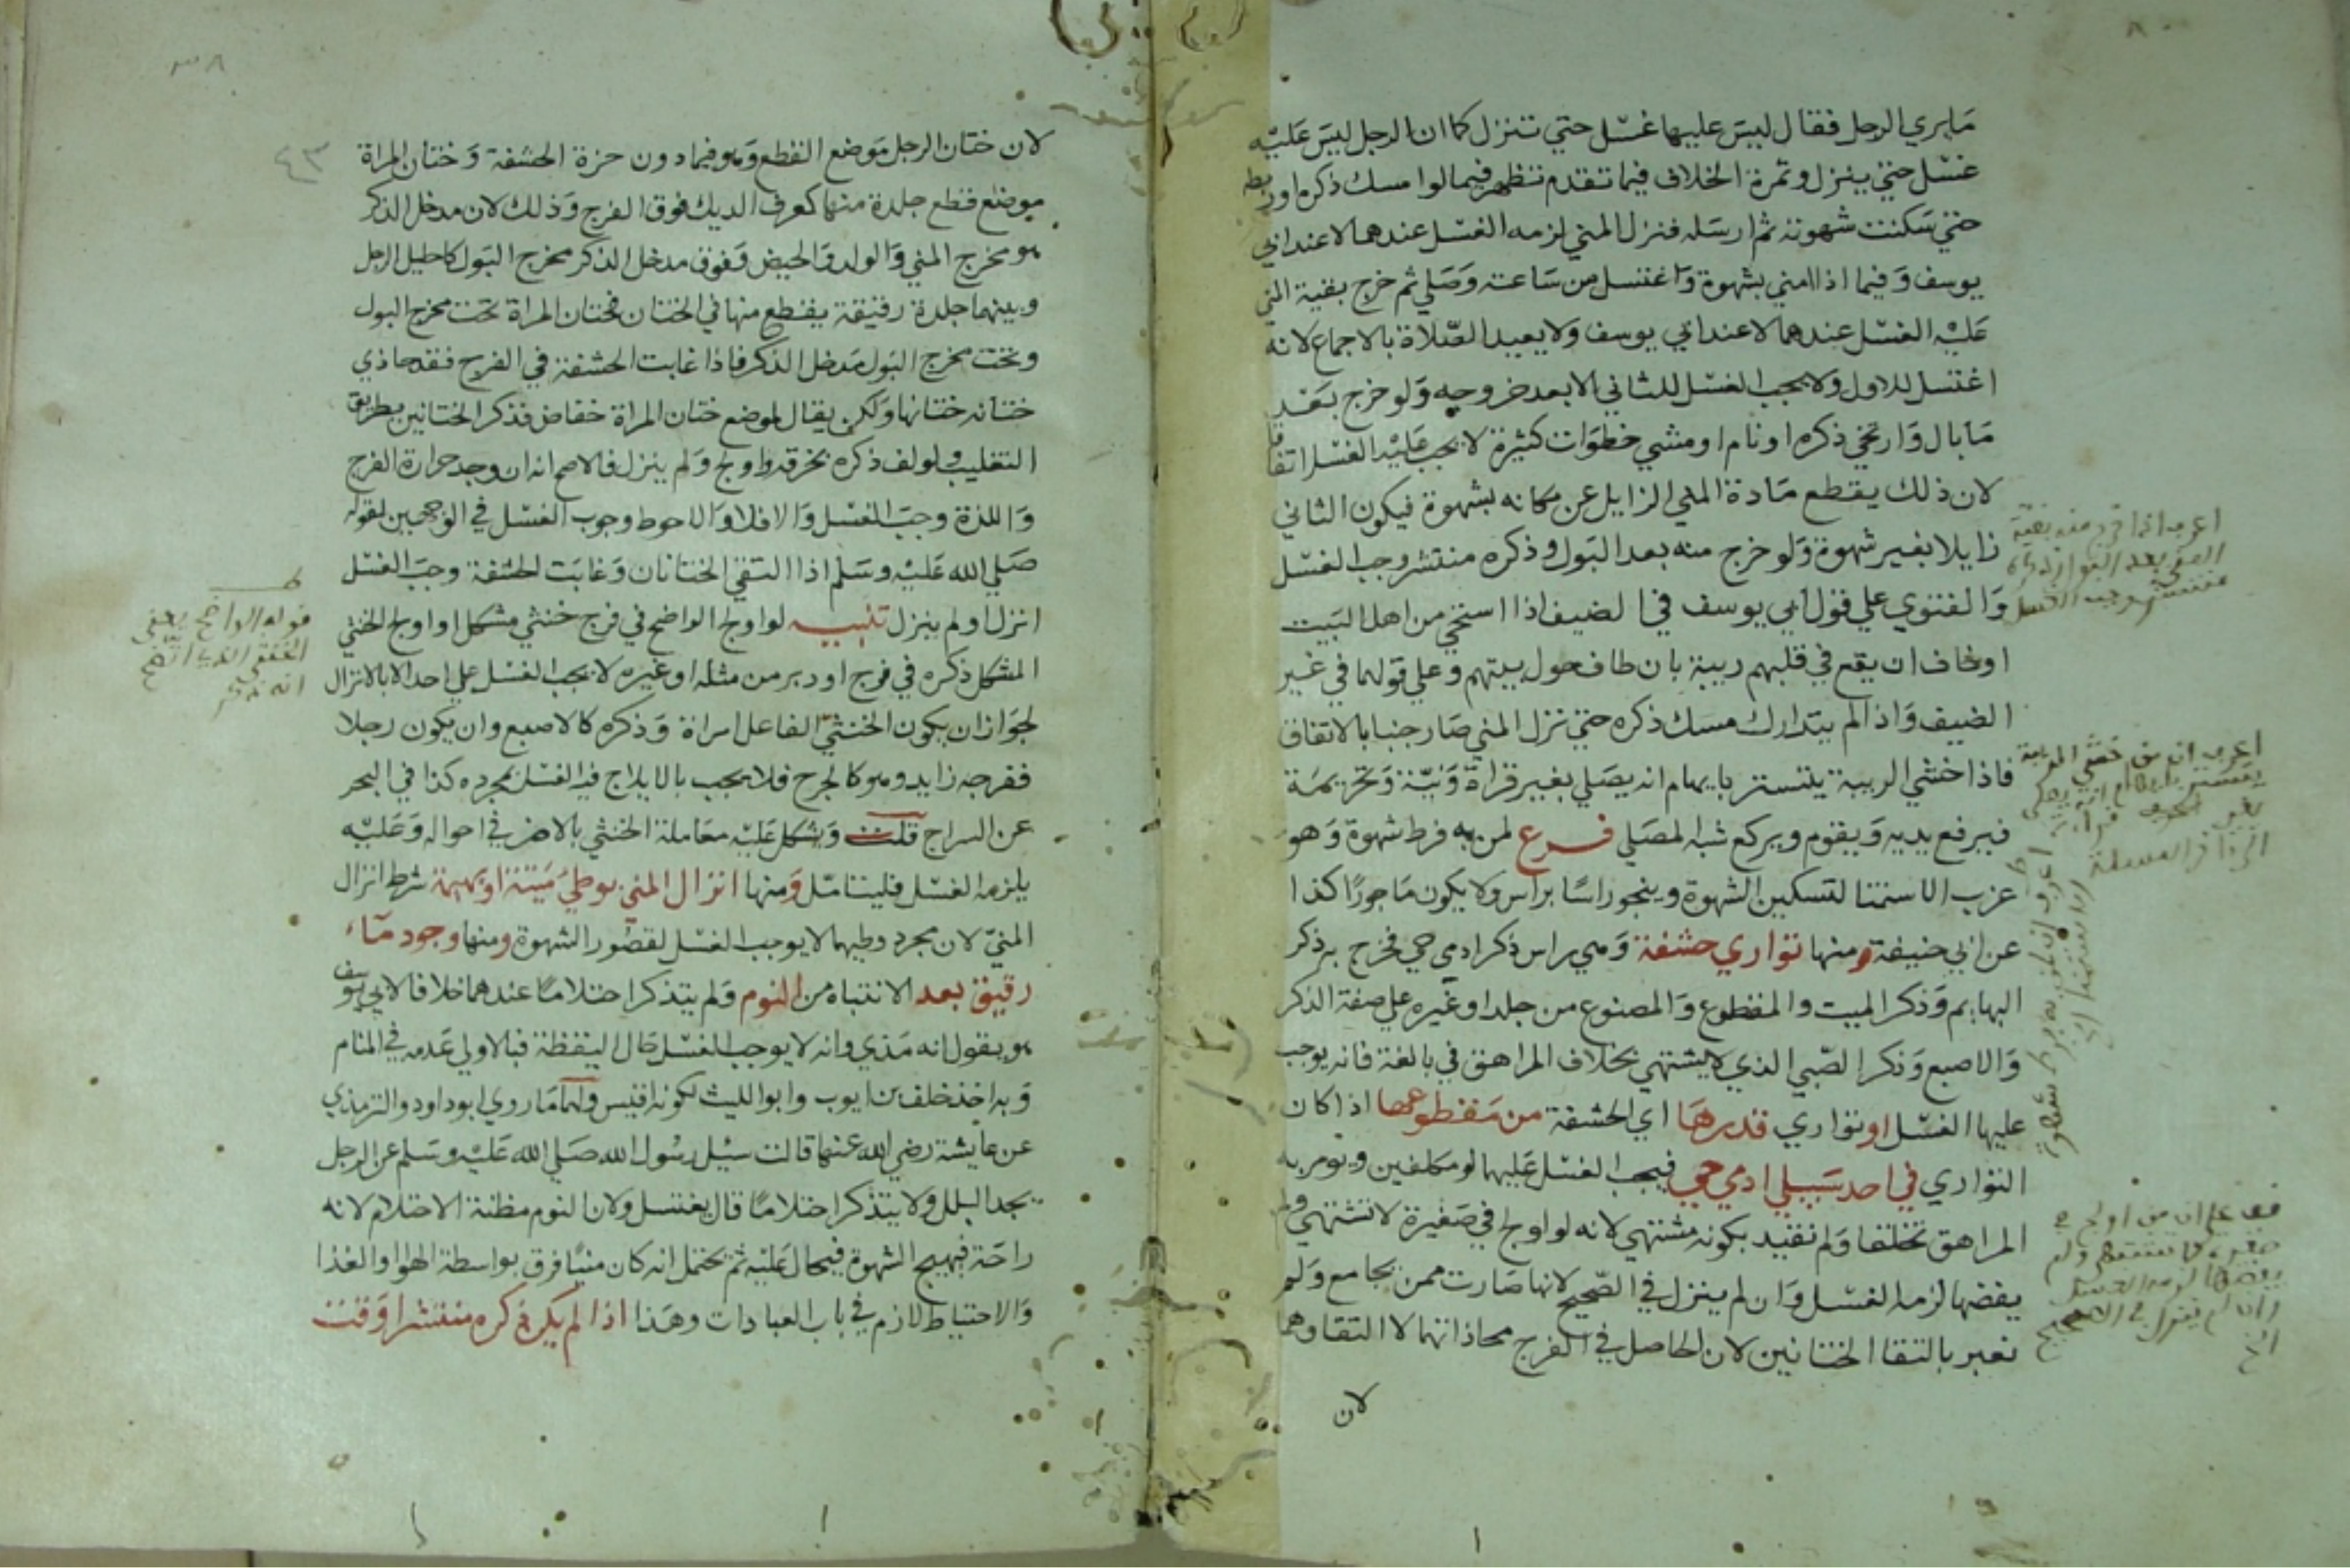 ما يري الرجل فقال ليس عليها غسل حتي تنزل كما ان الرجل ليس عليه
غسل حتي ينزل وثمرة الخلاف فيما تقدم تظهر فيما لو امسك ذكره او ربطه
حتي سكنت شهوته ثم ارسله فنزل المني لزمه الغسل عندهما لا عند ابي
يوسف وفيما اذا امني بشهوة واغتسل من ساعته وصلي ثم خرج بقية المني
عليه الغسل عندهما لا عند ابي يوسف ولا يعيد الصلاة بالاجماع لانه
اغتسل للاول ولا يجب الغسل للثاني الا بعد خروجه ولو خرج بعد
ما بال وارتخي ذكره او نام او مشي خطوات كثيرة لا يجب عليه الغسل اتفاقا
لان ذلك يقطع مادة المني الزايل عن مكانه بشهوة فيكون الثاني
زايلا بغير شهوة ولو خرج منه بعد البول وذكره منتشر وجب الغسل
والفتوي علي قول ابي يوسف في الضيف اذا استحي من اهل البيت
او خاف ان يقع في قلبهم ريبة بان طاف حول بيتهم وعلي قولهما في غير
الضيف واذا لم يتدارك مسك ذكره حتي نزل المني صار جنبا بالاتفاق
فاذا خشي الريبة يتستر بايهام انه يصلي بغير قراة ونية وتحريمة
فيرفع يديه ويقوم ويركع شبه المصلي فرع لمن به فرط شهوة وهو
عزب الاستمنا لتسكين الشهوة وينجو راسا براس ولا يكون ماجورا كذا
عن ابي حنيفة ومنها تواري حشفة وهي راس ذكر ادمي حي فخرج به ذكر
البهايم وذكر الميت والمقطوع والمصنوع من جلد او غيره علي صفة الذكر
والاصبع وذكر الصبي الذي لا يشتهي بخلاف المراهق في بالغة فانه يوجب
عليها الغسل او تواري قدرها اي الحشفة من مقطوعها اذا كان
التواري في احد سبيلي ادمي حي فيجب الغسل عليهما لو مكلفين ويومر به
المراهق تخلقا ولم نقيد بكونه مشتهي لانه لو اولج في صغيرة لا تشتهي ولم
يفضها لزمه الغسل وان لم ينزل في الصحيح لانها صارت ممن يجامع ولم
نعبر بالتقا الختانين لان الحاصل في الفرج محاذاتهما لا التقاوهما
لان
اعرف اذا خرج منه بقية
المني بعد البول وذكره
منتشر وجب الغسل
٤٣
لان ختان الرجل موضع القطع وهو فيما دون حزة الحشفة وختان المراة
موضع قطع جلدة منها كعرف الديك فوق الفرج وذلك لان مدخل الذكر
هو مخرج المني والولد والحيض وفوق مدخل الذكر مخرج البول كاحليل الرجل
وبينهما جلدة رقيقة يقطع منها في الختان فختان المراة تحت مخرج البول
وتحت مخرج البول مدخل الذكر فاذا غابت الحشفة في الفرج فقد حاذي
ختانه ختانها ولكن يقال لموضع ختان المراة خفاض فذكر الختانين بطريق
التغليب ولو لف ذكره بخرقة واولج ولم ينزل فالاصح انه ان وجد حرارة الفرج
واللذة وجب الغسل والا فلا والاحوط وجوب الغسل في الوجهين لقوله
صلي الله عليه وسلم اذا التقي الختانان وغابت الحشفة وجب الغسل
انزل او لم ينزل تنبيه لو اولج الواضح في فرج خنثي مشكل او اولج الخنثي
المشكل ذكره في فرج او دبر من مثله او غيره لا يجب الغسل علي احد الا بالانزال
لجواز ان يكون الخنثي الفاعل امراة وذكره كالاصبع وان يكون رجلا
ففرجه زايد وهو كالجرح فلا يجب بالايلاج فيه الغسل بمجرده كذا في البحر
عن السراج قلت ويشكل عليه معاملة الخنثي بالاضر في احواله وعليه
يلزمه الغسل فليتامل ومنها انزال المني بوطئ ميتة او بهيمة شرط انزال
المني لان مجرد وطيهما لا يوجب الغسل لقصور الشهوة ومنها وجود ماء
رقيق بعد الانتباه من النوم ولم يتذكر احتلاما عندهما خلافا لابي يوسف
هو يقول انه مذي وانه لا يوجب الغسل حال اليقظة فبالاولي عدمه في المنام
وبه اخذ خلف بن ايوب وابو الليث لكونه اقيس ولهما ما روي ابو داود والترمذي
عن عايشة رضي الله عنها قالت سيل رسول الله صلي الله عليه وسلم عن الرجل
يجد البلل ولا يتذكر احتلاما قال يغتسل ولان النوم مظنة الاحتلام لانه
راحة فيهيج الشهوة فيحال عليه ثم يحتمل انه كان منيا فرق بواسطة الهوا والغذا
والاحتياط لازم في باب العبادات وهذا اذا لم يكن ذكره منتشرا وقت
قوله الواضح يعني
الخنثي الذي اتضح
انه ذكر